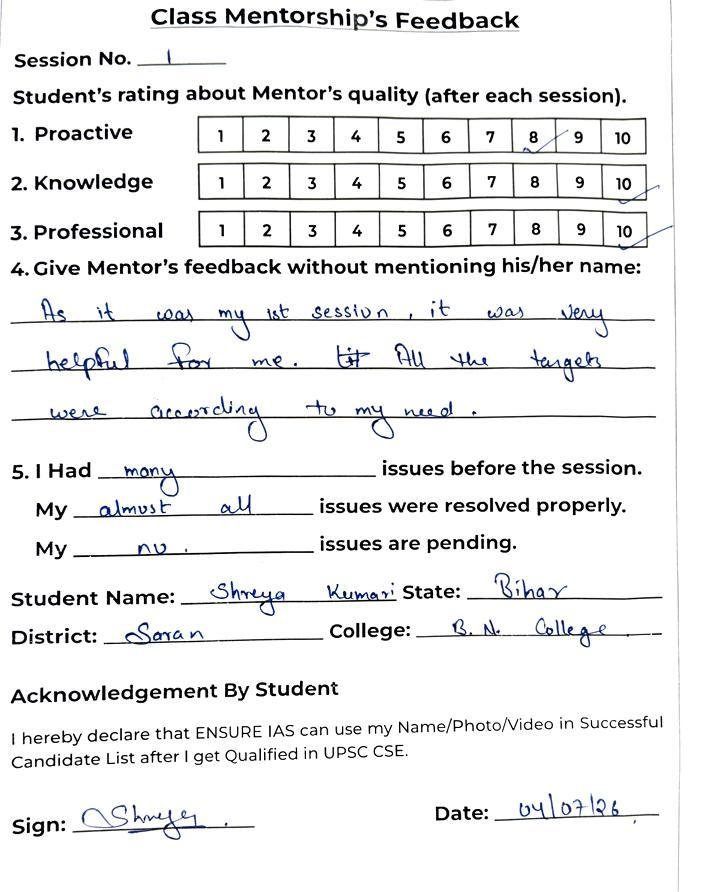 Class Mentorship's Feedback
Session No. 1
Student's rating about Mentor's quality (after each session).
1. Proactive 1 2 3 4 5 6 7 8 9 10
2. Knowledge 1 2 3 4 5 6 7 8 9 10
3. Professional 1 2 3 4 5 6 7 8 9 10
4. Give Mentor's feedback without mentioning his/her name:
As it was my 1st session, it was very
helpful for me. All the targets
were according to my need.
5. I Had many issues before the session.
My almost all issues were resolved properly.
My no. issues are pending.
Student Name: Shreya Kumari State: Bihar
District: Saran College: B. N. College
Acknowledgement By Student
I hereby declare that ENSURE IAS can use my Name/Photo/Video in Successful
Candidate List after I get Qualified in UPSC CSE.
Sign: Shreya Date: 04/07/26